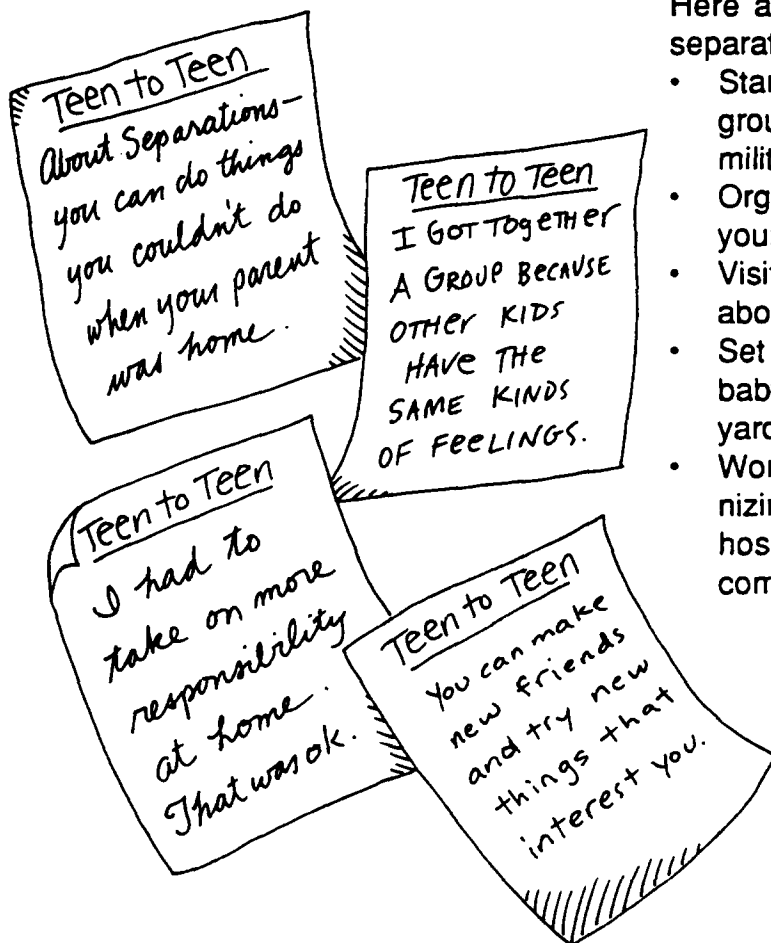 Teen to Teen
About Separations—
you can do things
you couldn't do
when your parent
was home.
Teen to Teen
I GOT TOgeTHER
A GROUP BecAUSE
OTHer KIDS
HAVe THe
SAMe KINDS
OF FeeLINGS.
Teen to Teen
I had to
take on more
responsibility
at home.
That was ok.
Teen to Teen
You can make
new friends
and try new
things that
interest you.
Here a
separat
• Star
grou
milit
• Org
you
• Visit
abo
• Set
bab
yard
• Wor
nizin
hos
com